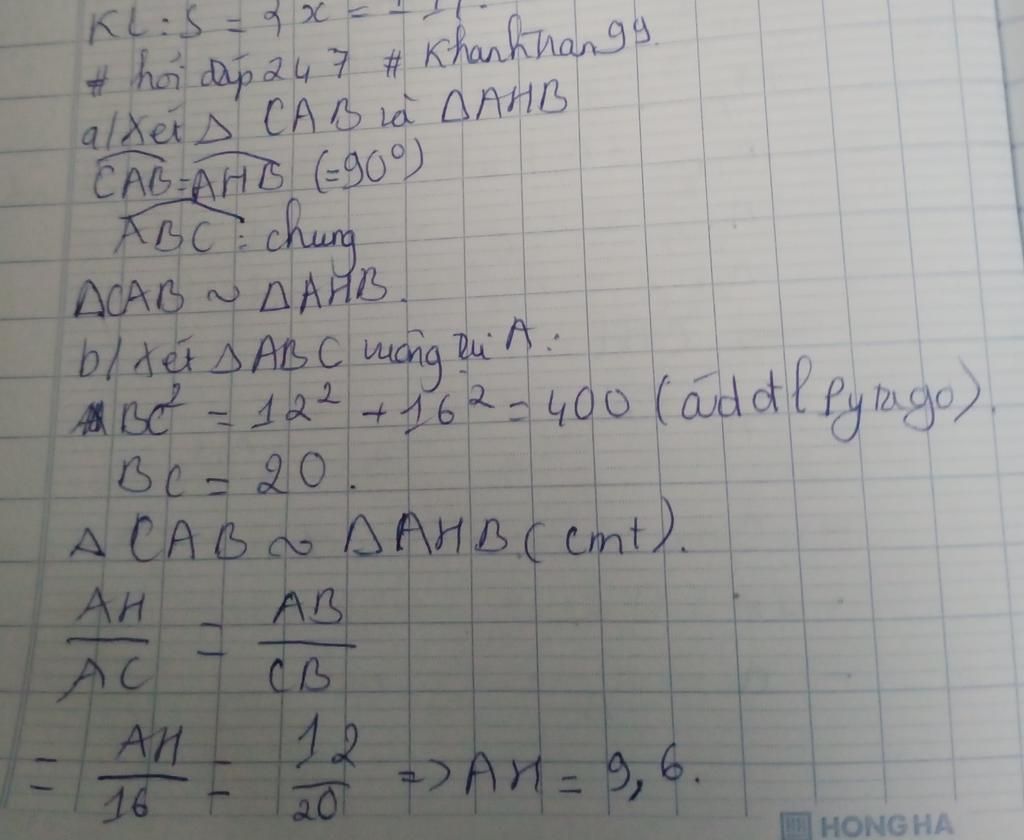 KL: S = { x =
# hỏi đáp 247 # Khanhnan99.
a/ Xét Δ CAB và ΔAHB
CAB = AHB (=90°)
ABC: chung
ΔCAB ~ ΔAHB.
b/ Xét ΔABC vuông tại A:
BC² = 12² + 16² = 400 (ád đl Pytago).
BC = 20.
Δ CAB ~ ΔAHB (cmt).
AH/AC = AB/CB
= AH/16 = 12/20 => AH = 9,6.
HONG HA